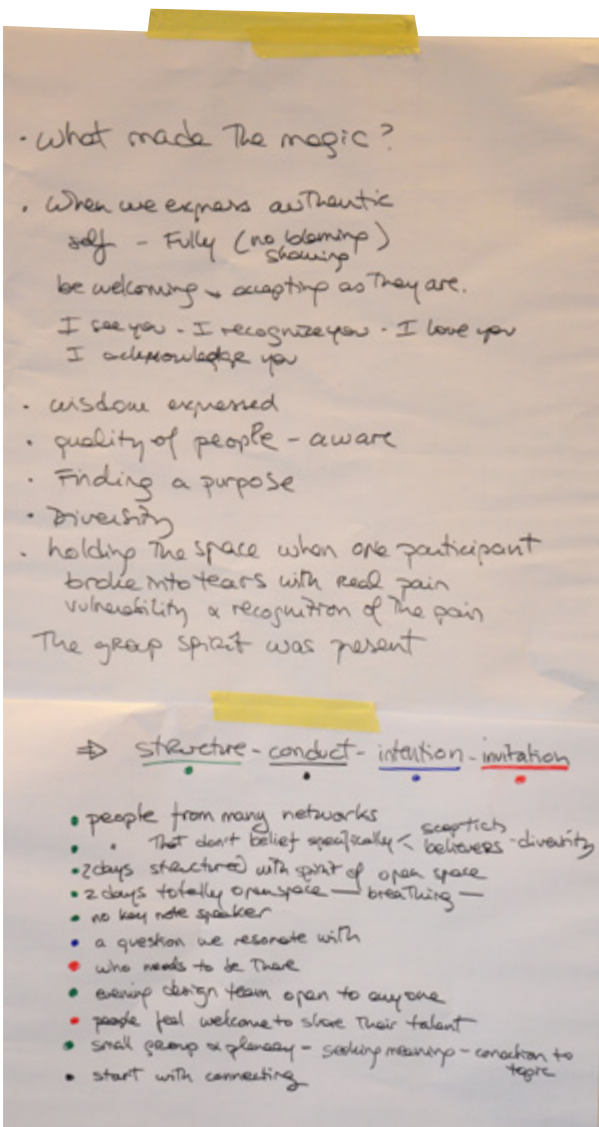 · What made The magic?
· When we express authentic
self - Fully (no blaming)
shaming
be welcoming & accepting as They are.
I see you - I recognize you - I love you
I acknowledge you
· wisdom expressed
· quality of people - aware
· Finding a purpose
· Diversity
· holding The space when one participant
broke into tears with Real pain
vulnerability & recognition of The pain
The group spirit was present
⇒ structure - conduct - intention - invitation
• people from many networks
• " That don't belief specifically < sceptics
believers - diversity
• 2 days structured with spirit of open space
• 2 days totally open space — breathing —
• no key note speaker
• a question we resonate with
• who needs to be There
• evening design team open to anyone
• people feel welcome to share Their talent
• small group & plenary - seeking meaning - conection to
topic
• start with connecting